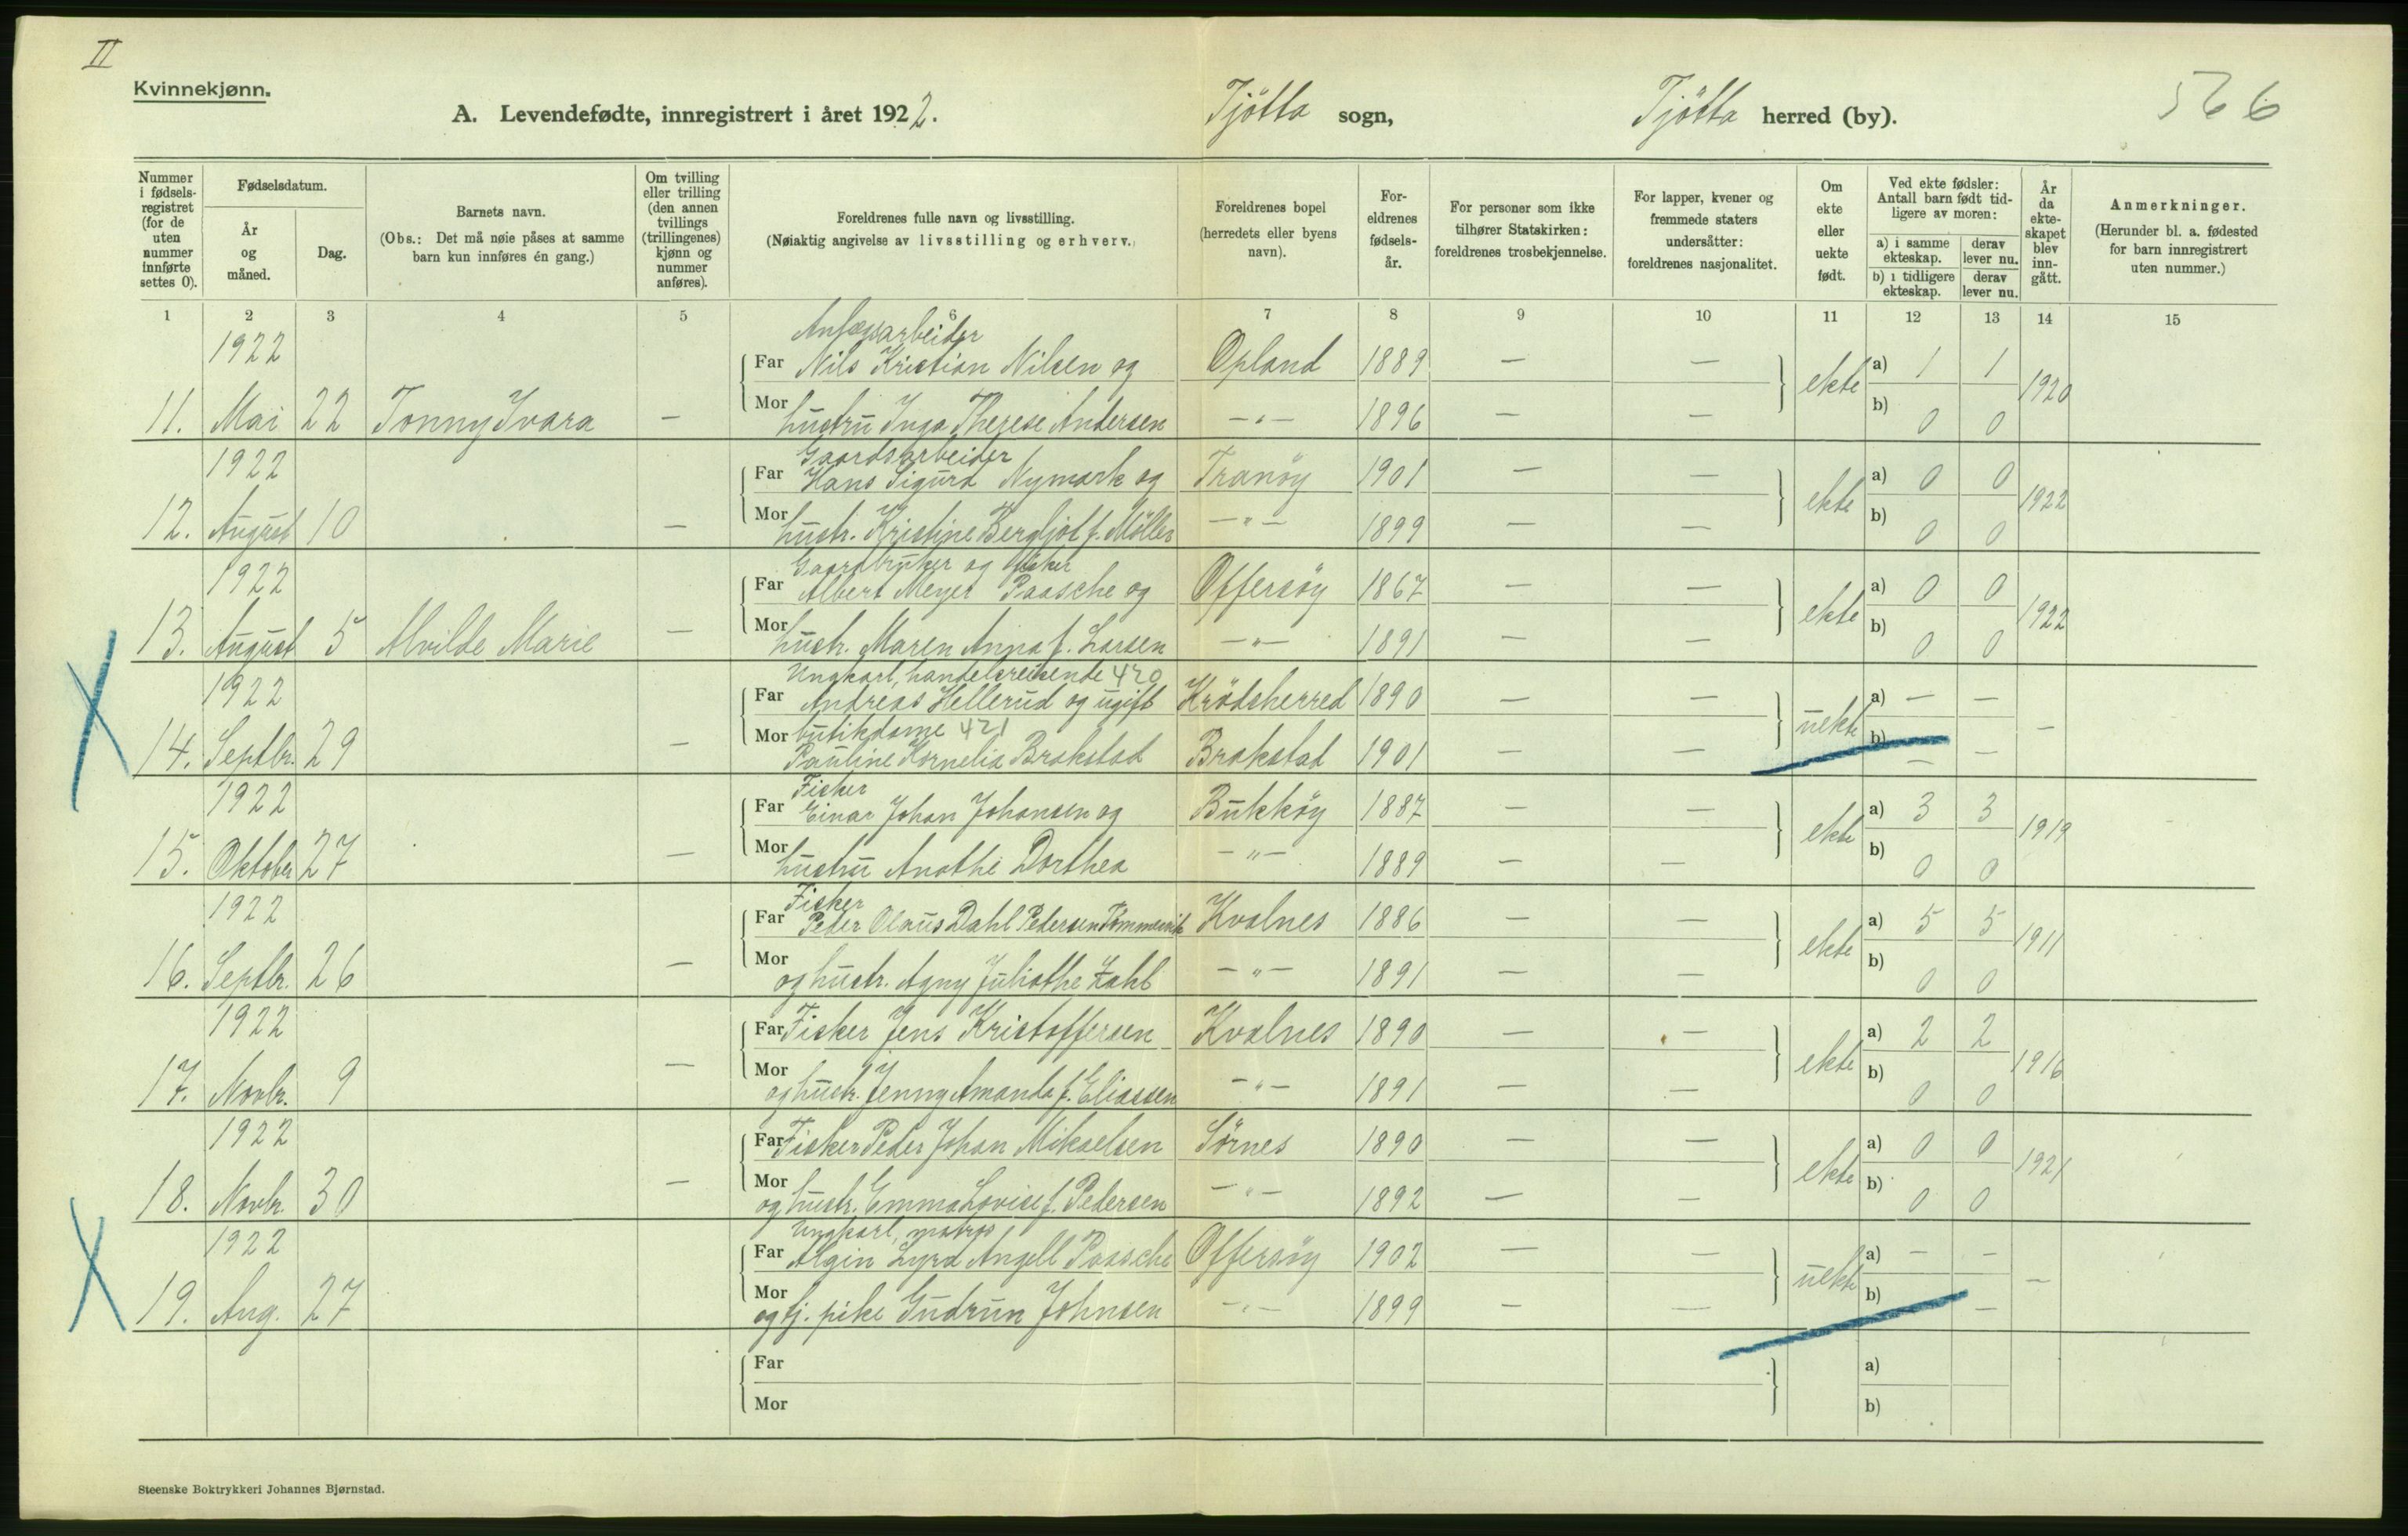 II
Kvinnekjønn.
A. Levendefødte, innregistrert i året 1922. Tjötta sogn, Tjötta herred (by). 566
Nummer i fødsels-registret (for de uten nummer innførte settes 0).
Fødselsdatum.
År og måned.
Dag.
Barnets navn.
(Obs.: Det må nøie påses at samme barn kun innføres én gang.)
Om tvilling eller trilling (den annen tvillings (trillingenes) kjønn og nummer anføres).
Foreldrenes fulle navn og livsstilling.
(Nøiaktig angivelse av livsstilling og erhverv.)
Foreldrenes bopel (herredets eller byens navn).
For-eldrenes fødsels-år.
For personer som ikke tilhører Statskirken: foreldrenes trosbekjennelse.
For lapper, kvener og fremmede staters undersåtter: foreldrenes nasjonalitet.
Om ekte eller uekte født.
Ved ekte fødsler: Antall barn født tid-ligere av moren:
a) i samme ekteskap. derav lever nu.
b) i tidligere ekteskap. derav lever nu.
År da ekte-skapet blev inn-gått.
Anmerkninger.
(Herunder bl. a. fødested for barn innregistrert uten nummer.)
1 2 3 4 5 6 7 8 9 10 11 12 13 14 15
1922 Anlægsarbeider
Far Nils Kristian Nilsen og Opland 1889 — — ekte a) 1 1 1920
11. Mai 22 Tonny Ivara — Mor hustru Inga Therese Andersen —"— 1896 — — b) 0 0
1922 Gaardsarbeider
Far Hans Sigurd Nymark og Tranöy 1901 — — ekte a) 0 0 1922
12. August 10 — Mor hustr. Kristine Bergljot f. Möller —"— 1899 — — b) 0 0
1922 Gaardbruker og fisker
Far Albert Meyer Paasche og Offersöy 1867 — — ekte a) 0 0 1922
13. August 5 Alvilde Marie — Mor hustr. Maren Anna f. Larsen —"— 1891 — — b) 0 0
1922 Ungkarl, handelsreisende 420
Far Andreas Hellerud og ugift Krödsherred 1890 — — uekte a) — — —
Mor butikdame 421
14. Septbr. 29 — Pauline Kornelia Brakstad Brakstad 1901 — — b) — —
1922 Fisker
Far Einar Johan Johansen og Bukköy 1887 — — ekte a) 3 3 1919
15. Oktober 27 — Mor hustru Anathe Dorthea —"— 1889 — — b) 0 0
1922 Fisker
Far Peder Olaus Dahl Pedersen Tömmervik Kvalnes 1886 — — ekte a) 5 5 1911
16. Septbr. 26 — Mor og hustr. Agny Juliathe Zahl —"— 1891 — — b) 0 0
1922 Far Fisker Jens Kristoffersen Kvalnes 1890 — — ekte a) 2 2 1916
17. Novbr. 9 — Mor og hustr. Jenny Amanda f. Eliassen —"— 1891 — — b) 0 0
1922 Far Fisker Peder Johan Mikaelsen Sörnes 1890 — — ekte a) 0 0 1921
18. Novbr. 30 — Mor og hustr. Emma Lovise f. Pedersen —"— 1892 — — b) 0 0
1922 Ungkarl, matros
Far Algin Lyra Angell Paasche Offersöy 1902 — — uekte a) — — —
19. Aug. 27 Mor og tj. pike Gudrun Johnsen —"— 1899 — — b) —
Far a)
Mor b)
Steenske Boktrykkeri Johannes Bjørnstad.